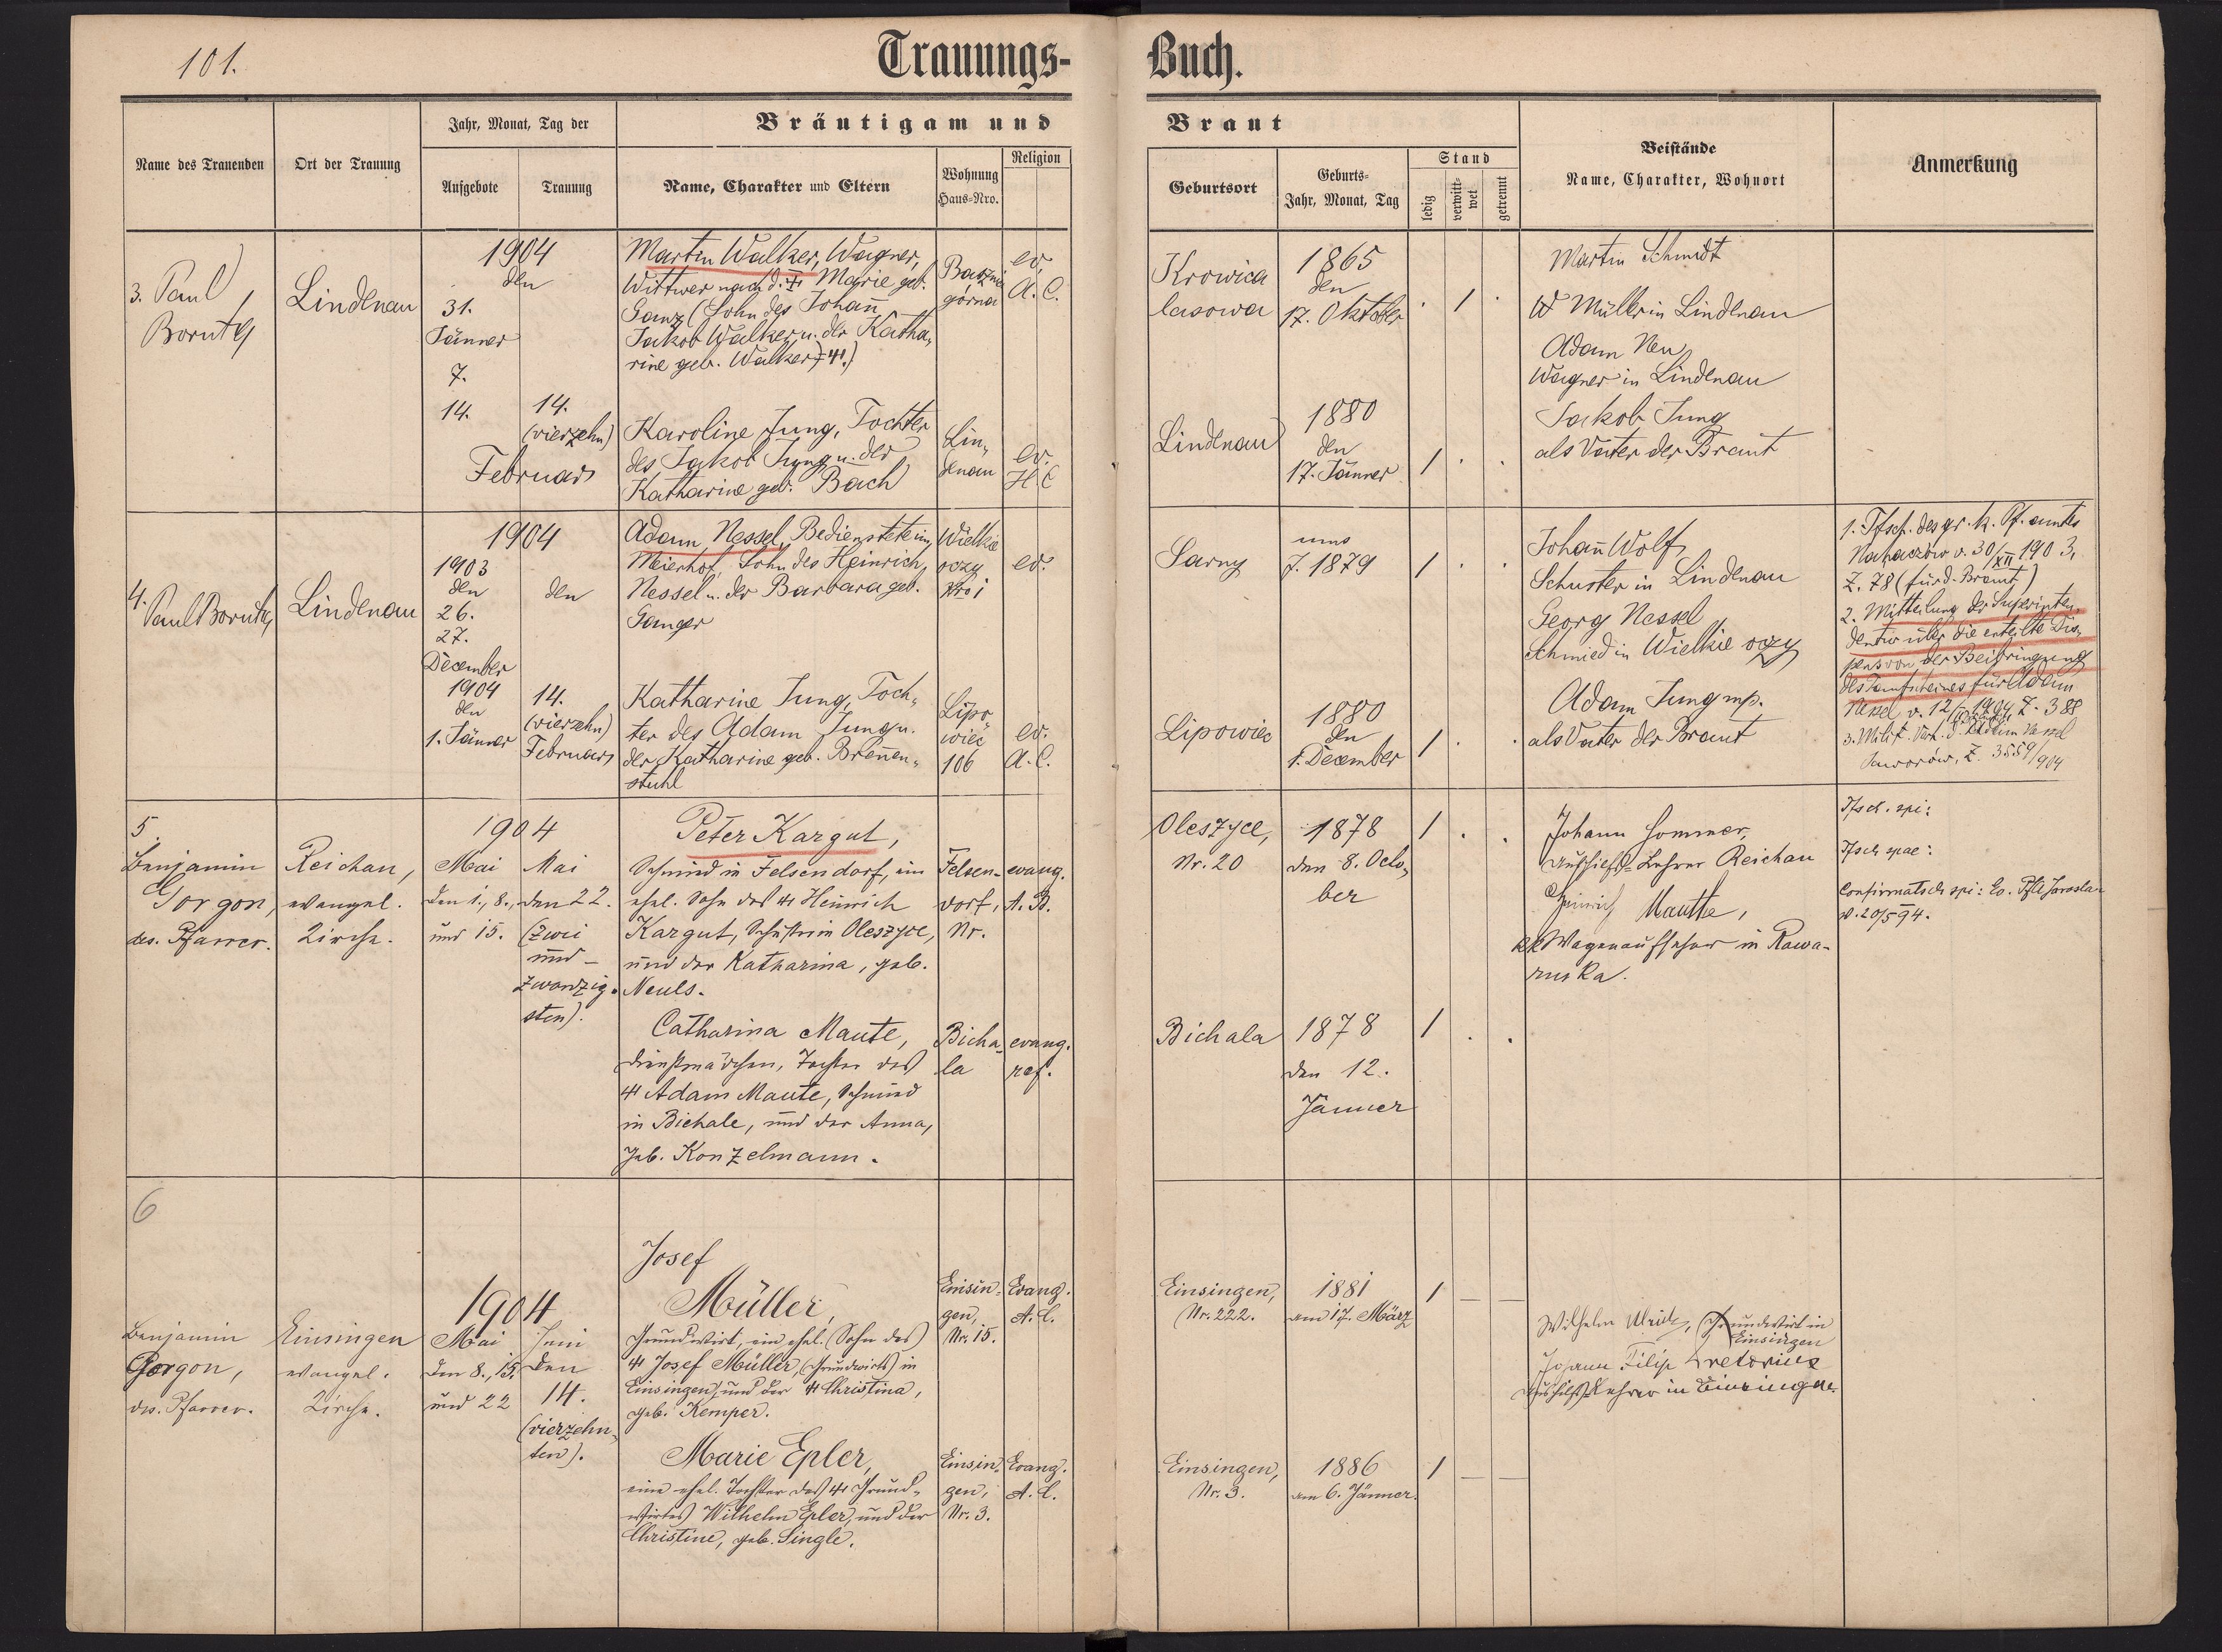 101.
Trauungs-Buch.
Name des Trauenden
Ort der Trauung
Jahr, Monat, Tag der
Aufgebote
Trauung
Bräutigam und Braut
Name, Charakter und Eltern
Wohnung
Haus-Nro.
Religion
Geburtsort
Geburts-
Jahr, Monat, Tag
Stand
ledig
verwitt-
wet
getrennt
Beistände
Name, Charakter, Wohnort
Anmerkung
3. Paul
Boruta
Lindenau
1904
den
31.
Jänner
7.
14.
14.
(vierzehn)
Februar
Martin Walker, Wagner,
Wittwer nach d. Marie geb.
Ganz (Sohn des Johan̄
Jakob Walker u. der Katha„
rine geb. Walker)
górna
ev.
A. C.
Krowica
lasowa
1865
den
17. Oktober
. 1 .
Martin Schmidt
Müller in Lindenau
Adam Neu
Wagner in Lindenau
Karoline Jung, Tochter
des Jakob Jung u. der
Katharine geb. Bach
Lin„
denau
ev.
H. C
Lindenau
1880
den
17. Jänner
1 . .
Jakob Jung
als Vater der Braut
4.
Paul Boruta
Lindenau
1904
1903
den
26.
27.
December
1904
den
1. Jänner
den
14.
(vierzehn)
Februar
Adam Nessel, Bediensteter im
Meierhof, Sohn des Heinrich
Nessel u. der Barbara geb.
Ganger
Wielkie
oczy
Nro 1
ev.
Sarny
ums
J. 1879
1 . .
Johan̄ Wolf,
Schuster in Lindenau
Georg Nessel
Schmied in Wielkie oczy
Katharine Jung, Toch„
ter des Adam Jung u.
der Katharine geb. Bren̄en„
stuhl
Lipo„
wiec
106
ev.
A. C.
Lipowiec
1880
den
1. December
1 . .
Adam Jung mp.
als Vater der Braut
1. Tfsch. des gr. k. Pf. amtes
Nahaczów v. 30/XII 1903,
Z. 78 (für d. Braut)
2. Mitteilung der Superinten„
dentur über die erteilte Dis„
pens von der Beibringung
des Taufscheines für Adam
Nessel v. 12/ 1904, Z. 388
3. Milit. d. Adam Nessel
Jaworów, Z. 3559/904
5.
Benjamin
Gorgon,
ev. Pfarrer.
Reichau,
evangel.
Kirche.
1904
Mai
den 1., 8.,
und 15.
Mai
den 22.
(zwei
und-
zwanzig-
sten).
Peter Kargut,
Schmied in Felsendorf, ein
ehel. Sohn des Heinrich
Kargut, Schuster in Oleszyce,
und der Katharina, geb.
Neuls.
Felsen-
dorf,
Nr.
evang.
A. B.
Oleszyce,
Nr. 20
1878
den 8. Octo„
ber
1 . .
Johann Sommer,
Aushilfs-Lehrer Reichau
Heinrich Mautte,
kk Wagenaufseher in Rawa-
ruska.
Tfsch. spi:
Tfsch spae:
Confirmatsch spi: Ev. Jaroslau
v. 20/5 94.
Catharina Maute,
Dienstmädchen, Tochter des
Adam Maute, Schmied
in Bichale, und der Anna,
geb. Konzelmann.
Bicha-
la
evang.
ref.
Bichala
1878
den 12.
Jänner
1 . .
6
Benjamin
Gorgon,
ev. Pfarrer.
Einsingen
evangel.
Kirche.
1904
Mai
den 8., 15.
und 22
Juni
den
14.
(vierzehn-
ten).
Josef
Müller,
Grundwirt, ein ehel. Sohn des
Josef Müller, (Grundwirts) in
Einsingen, und der Christina,
geb. Kemper.
Einsin-
gen,
Nr. 15.
Evang.
A. C.
Einsingen,
Nr. 222.
1881
am 17. März
1 — —
Wilhelm Ulrich, Grundwirt in
Einsingen
Johann Filip Pretorius
Aushilfs-Lehrer in Einsingen
Marie Epler,
eine ehel. Tochter des Grund-
wirtes Wilhelm Epler, und der
Christine, geb. Single.
Einsin-
gen,
Nr. 3.
Evang.
A. C.
Einsingen,
Nr. 3.
1886
am 6. Jänner.
1 — —